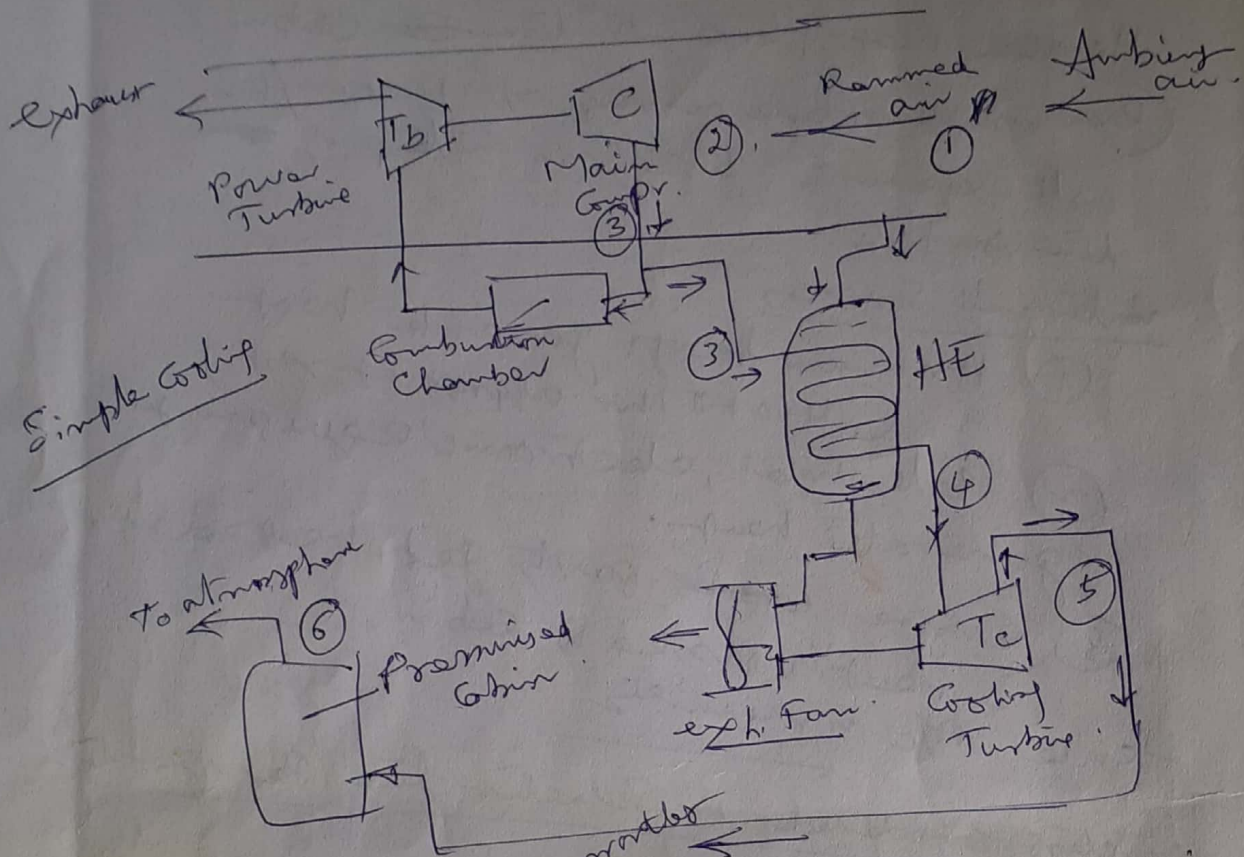 Ambient
air.
Rammed
air
①
②.
exhaust
Tb
C
Power
Turbine
Main
Compr.
③
Combustion
Chamber
③
HE
Simple Cooling
④
⑤
To atmosphere
⑥
Pressurised
Cabin.
Tc
exh. Fan.
Cooling
Turbine.